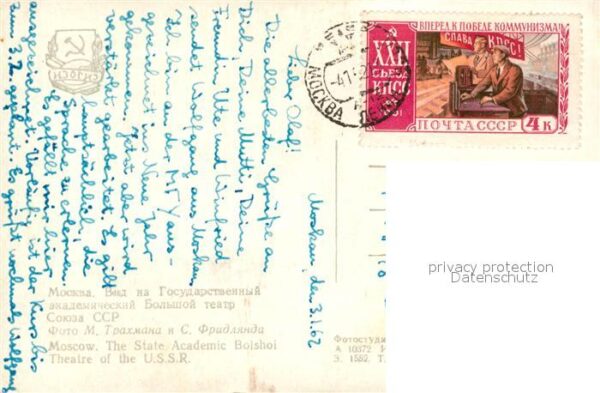 Moskau, den 3.1.62
Lieber Olaf!
Die allerbesten Grüße an
Dich, Deine Mutti, Deine
Freundin Ute und Winfried
sendet Wolfgang aus Moskau.
Ich bin an der aus-
gezeichnet ins Neue Jahr
Jetzt aber wird
verstärkt gearbeitet. Es gilt
hauptsächlich, die
Sprache zu erlernen.
Es gefällt mir hier
ausgezeichnet. Vorläufig ist der Kurs bis
zum 3.2. geplant. Es grüßt nochmals Wolfgang
ВПЕРЕД К ПОБЕДЕ КОММУНИЗМА!
СЛАВА КПСС!
XXII
СЪЕЗД
КПСС
ПОЧТА СССР
4 к
МОСКВА
Москва. Вид на Государственный
академический Большой театр
Союза ССР
Фото М. Трахмана и С. Фридлянда
Moscow. The State Academic Bolshoi
Theatre of the U.S.S.R.
Фотостуди
А 10372 И
З. 1582. Т.
privacy protection
Datenschutz